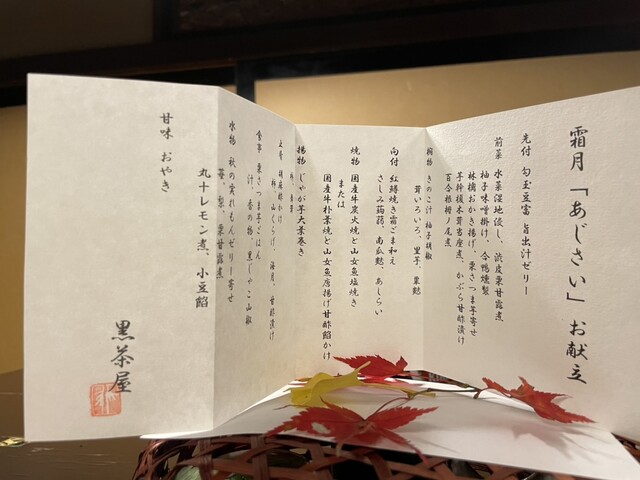 霜月「あじさい」お献立
先付 勾玉豆富 旨出汁ゼリー
前菜 水菜湿地浸し、渋皮栗甘露煮
柚子味噌掛け、合鴨燻製
林檎おかき揚げ、栗さつま芋寄せ
芋幹榎木茸当座煮、かぶら甘酢漬け
百合根栂ノ尾煮
椀物 きのこ汁 柚子胡椒
茸いろいろ、里芋、粟麩
向付 紅鱒焼き霜ごま和え
さしみ蒟蒻、南瓜麩、あしらい
焼物 国産牛炭火焼と山女魚塩焼き
または
国産牛朴葉焼と山女魚唐揚げ甘酢餡かけ
揚物 じゃが芋大葉巻き
柿、山くらげ、海月、甘酢漬け
食事 栗さつま芋ごはん
汁、香の物、黒じゃこ山椒
水物 秋の実れもんゼリー寄せ
栗甘露煮
丸十レモン煮、小豆餡
甘味 おやき
黒茶屋